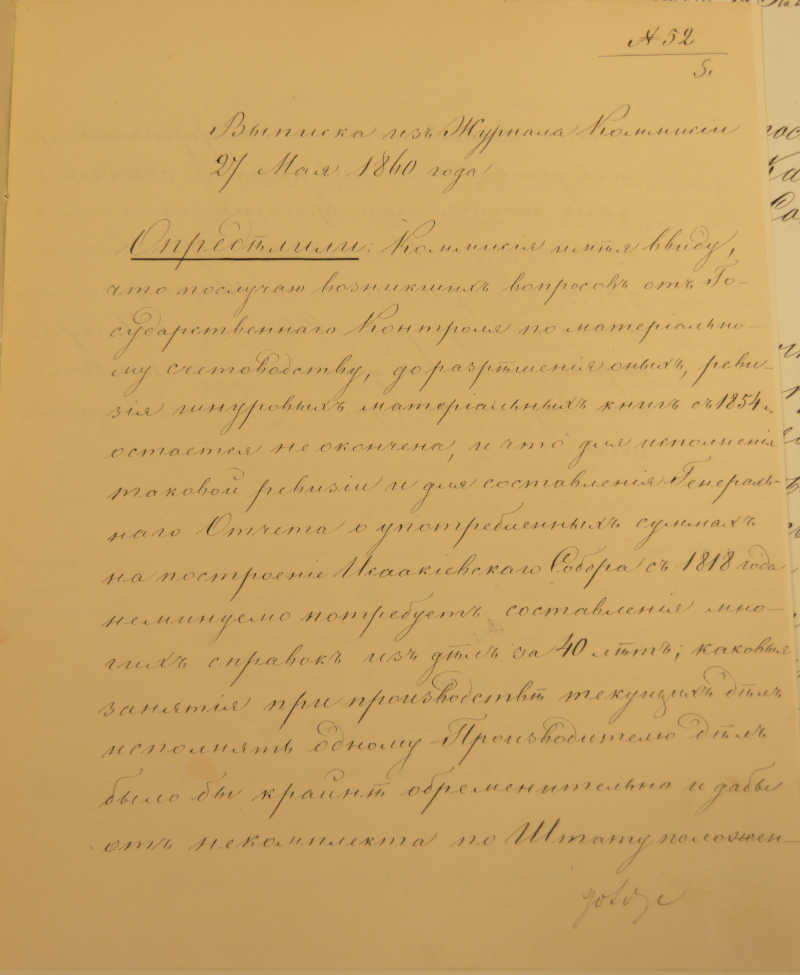 № 52
5.
Выписка изъ Журнала Коммисіи
27 Мая 1860 года
Опредѣлили: Коммисія имѣя ввиду,
что послучаю возникшихъ вопросовъ отъ Го-
сударственнаго Контроля по матеріально-
му счетоводству, до разрѣшенія оныхъ, реви-
зія шнуровыхъ матеріальныхъ книгъ съ 1854 г.
остается не окончена, и что для исполненія
таковой ревизіи и для составленія Генераль-
наго Отчета о употребленныхъ суммахъ
на построеніе Исаакіевскаго Собора съ 1818 года
неминуемо потребуетъ составленія мно-
гихъ справокъ изъ дѣлъ за 40 лѣтъ; каковыя
занятія при производствѣ текущихъ дѣлъ
исполнять одному Производителю дѣлъ
было бы крайнѣ обременительно и дабы
отъ некомплекта по Штату положен-